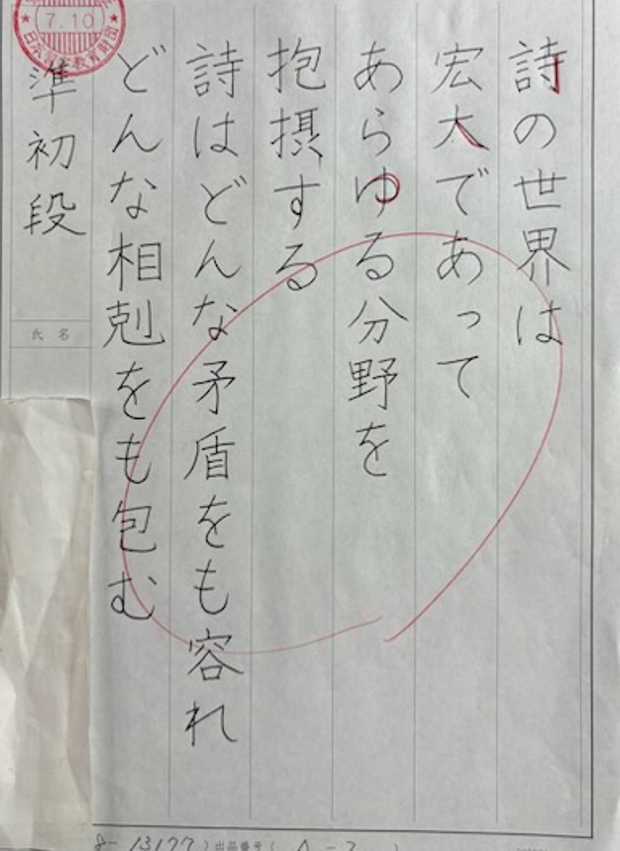 詩の世界は
宏大であって
あらゆる分野を
抱摂する
詩はどんな矛盾をも容れ
どんな相剋をも包む
準初段
氏名
7.10
出品番号